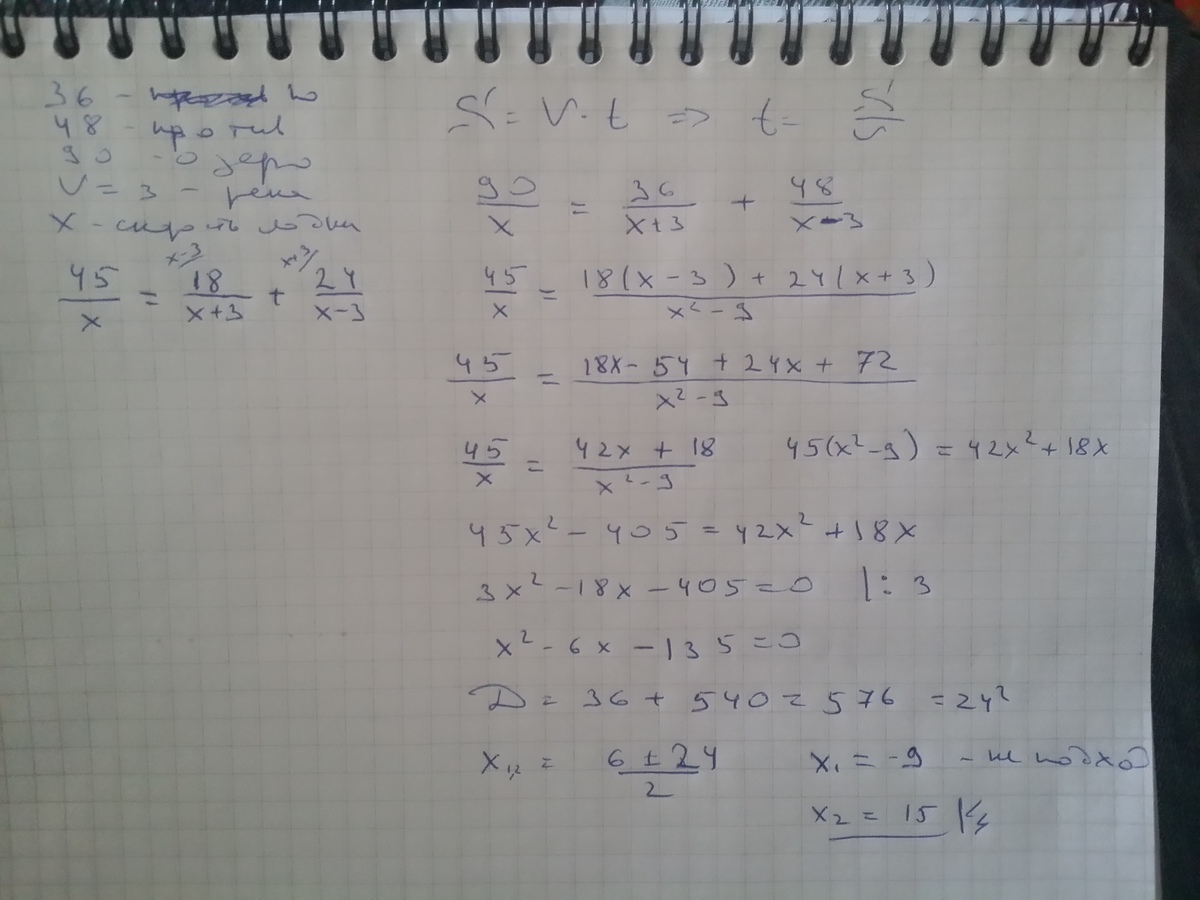 36 - по
48 - против
90 - озеро
V = 3 - река
x - скорость лодки
45/x = 18/(x+3) + 24/(x-3)
S = V · t => t = S/V
90/x = 36/(x+3) + 48/(x-3)
45/x = (18(x-3) + 24(x+3))/(x²-9)
45/x = (18x - 54 + 24x + 72)/(x²-9)
45/x = (42x + 18)/(x²-9) 45(x²-9) = 42x² + 18x
45x² - 405 = 42x² + 18x
3x² - 18x - 405 = 0 |: 3
x² - 6x - 135 = 0
D = 36 + 540 = 576 = 24²
x₁,₂ = (6 ± 24)/2 x₁ = -9 - не подход
x₂ = 15